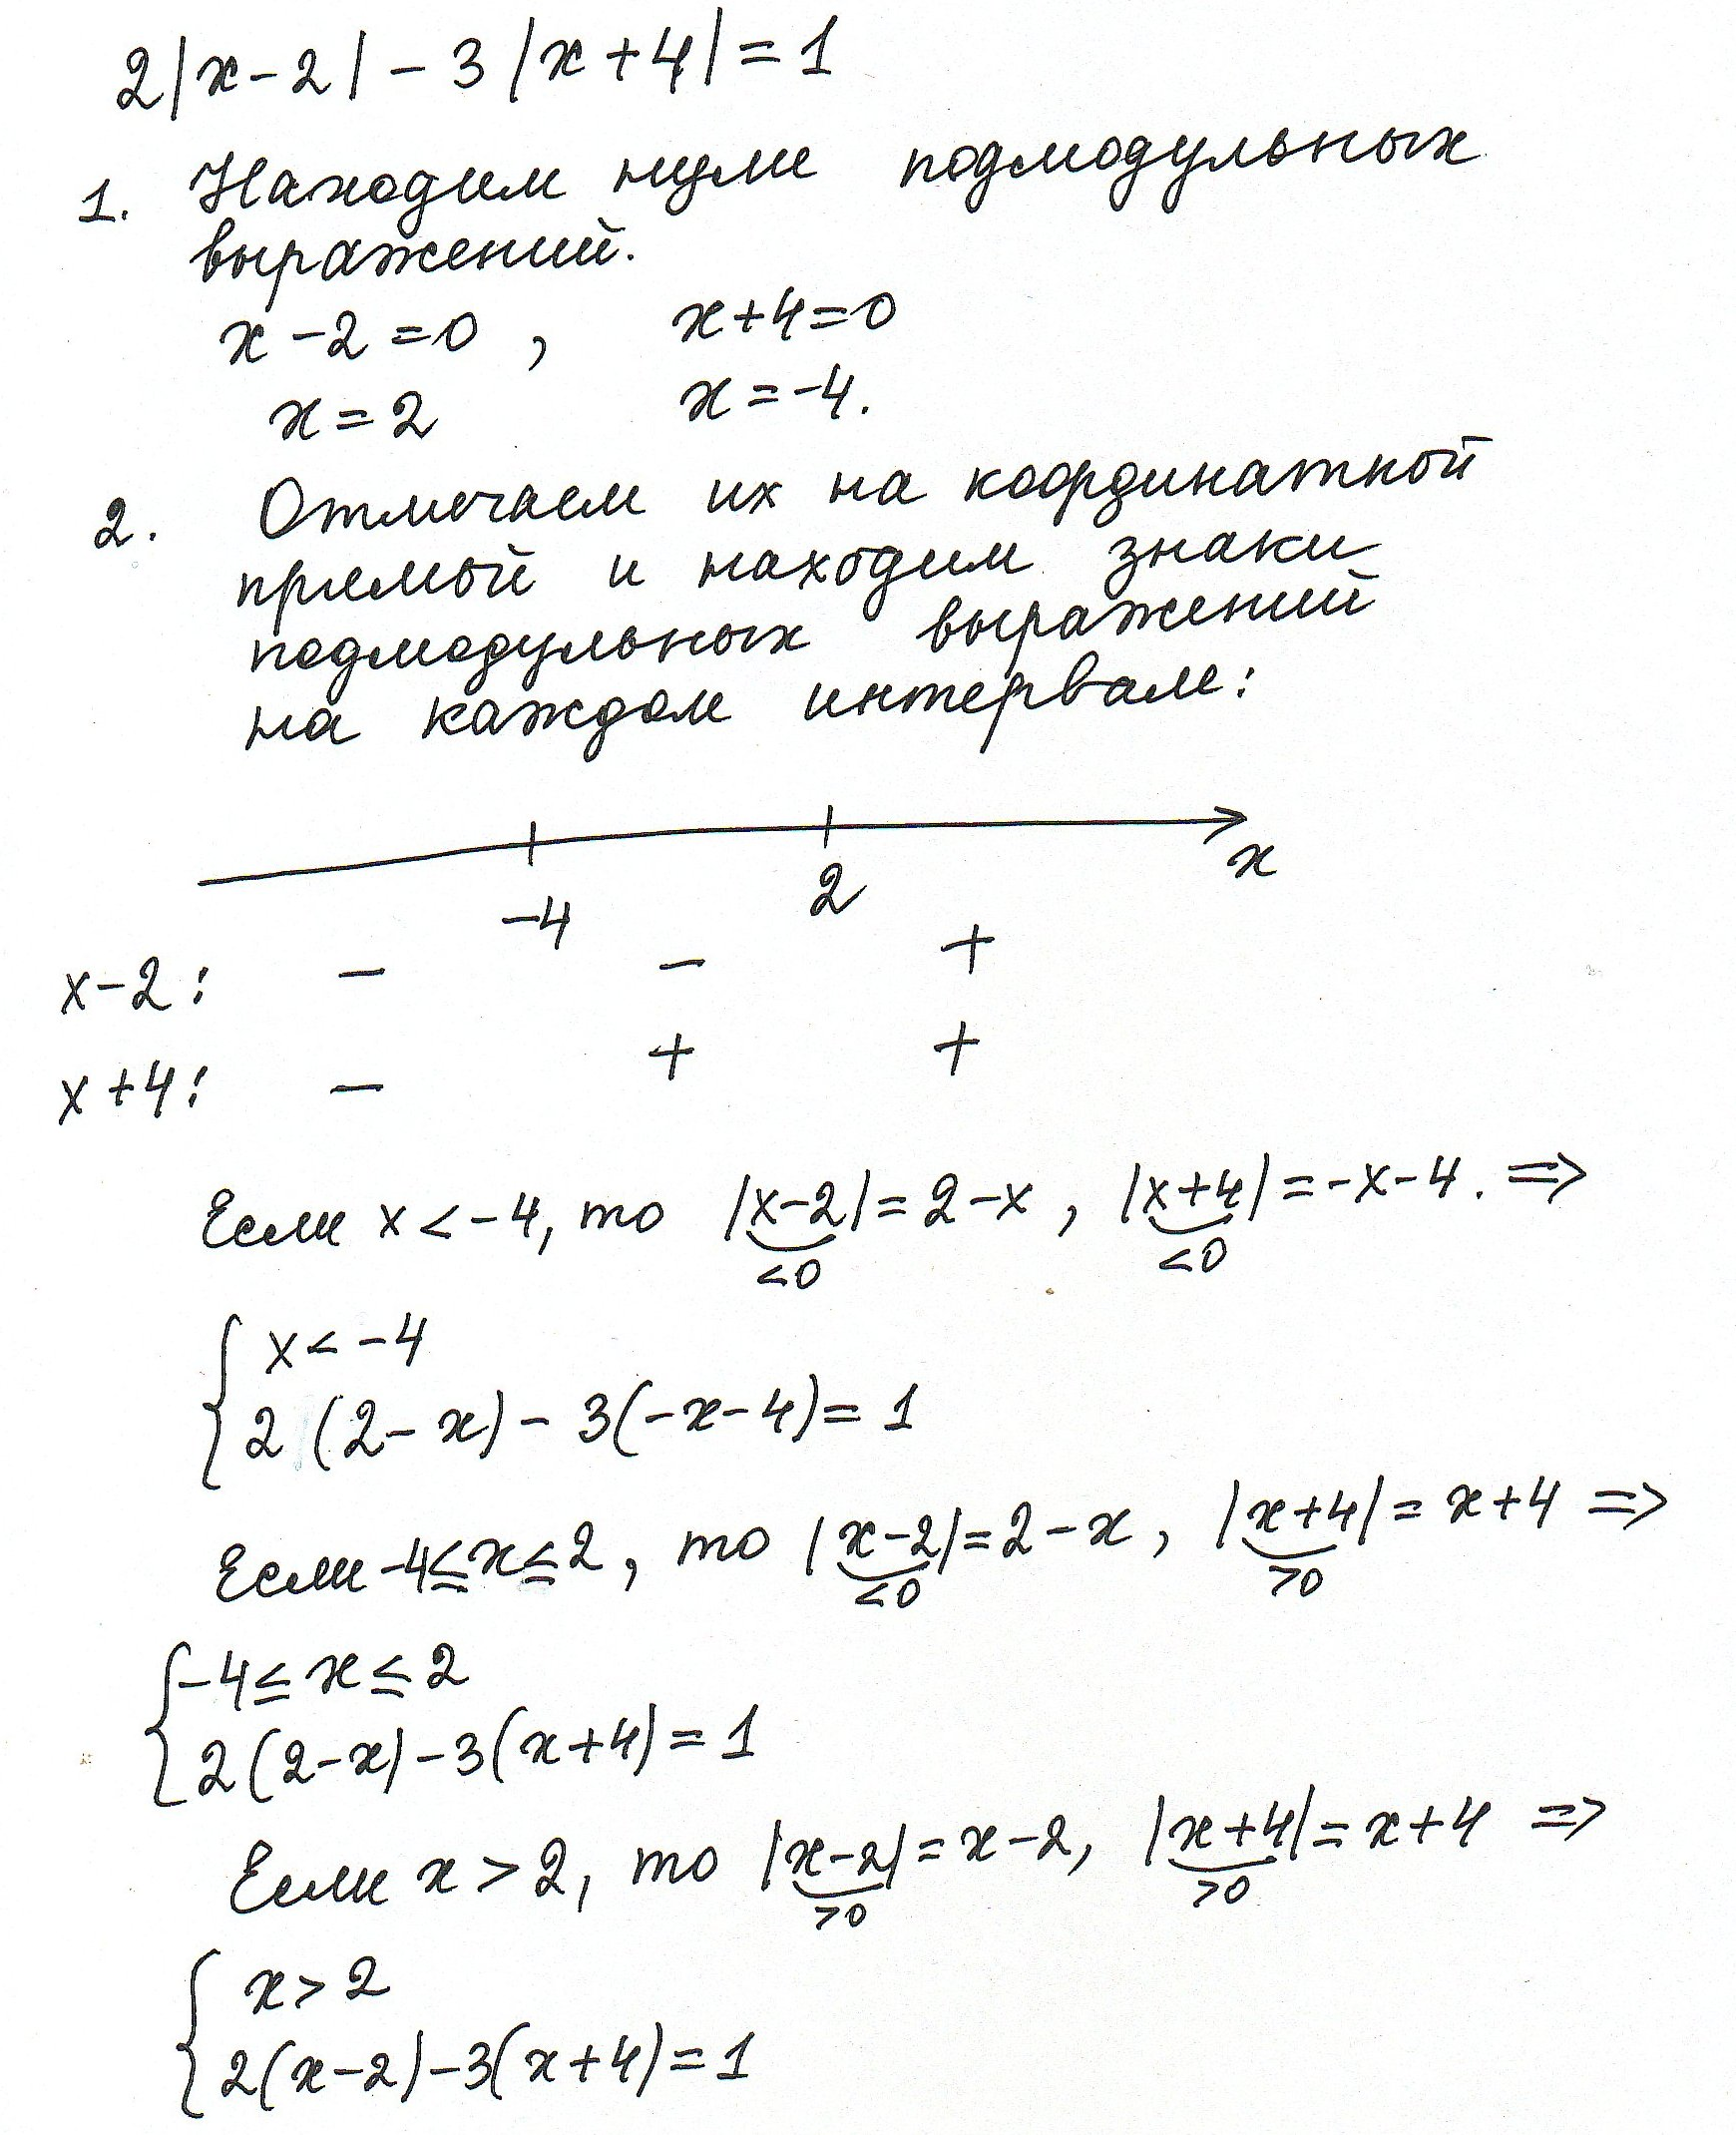 2|x-2|-3|x+4|=1
1. Находим нули подмодульных
выражений.
x-2=0, x+4=0
x=2 x=-4.
2. Отмечаем их на координатной
прямой и находим знаки
подмодульных выражений
на каждом интервале:
-4 2 x
x-2: - - +
x+4: - + +
Если x<-4, то |x-2|=2-x, |x+4|=-x-4. =>
<0 <0
{ x<-4
2(2-x)-3(-x-4)=1
Если -4≤x≤2, то |x-2|=2-x, |x+4|=x+4 =>
<0 >0
{ -4≤x≤2
2(2-x)-3(x+4)=1
Если x>2, то |x-2|=x-2, |x+4|=x+4 =>
>0 >0
{ x>2
2(x-2)-3(x+4)=1